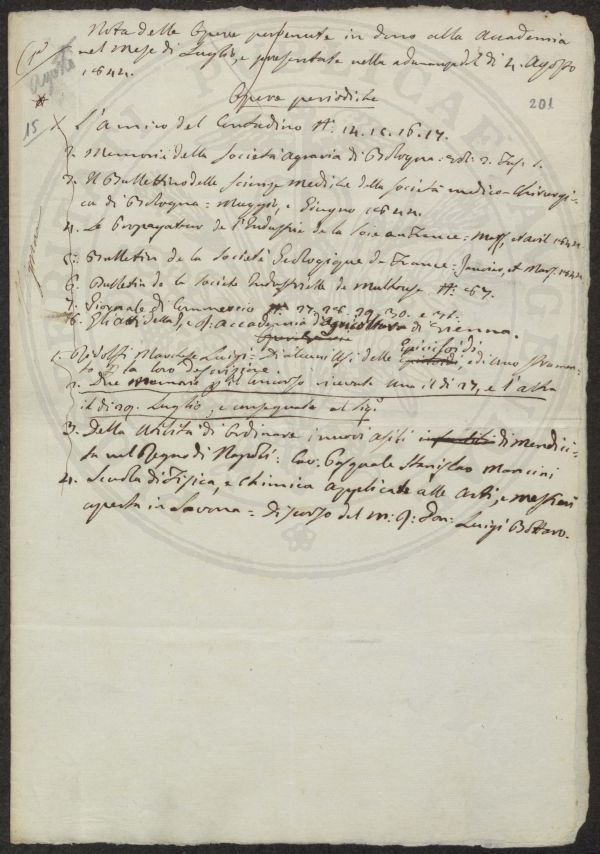 Nota delle Opere pervenute in dono alla Accademia
nel Mese di Luglio, e presentate nella adunanza del dì 4. Agosto
1844.
Agosto
15
201
Opere periodiche
L'Amico del Contadino N: 14. 15. 16. 17.
2. Memorie della Società Agraria di Bologna: vol: 2. Fas. 1.
3. Il Bullettino delle Scienze Mediche della Società medico-Chirurgi-
ca di Bologna: Maggio, e Giugno 1844.
4. Le Propagateur de l'Industrie de la Soie en France: Mars, et avril 1844
5. Bulletin de la Société Geologique de France: Janvier, et Mars. 1844
6. Bulletin de la Societe Industrielle de Mulhouse N: 87.
7. Giornale di Commercio N: 27. 28. 29. 30. e 31.
8. Gli atti della Accademia di Agricoltura di Vienna.
1. Ridolfi Marchese Luigi: Di alcuni usi delle ed uno strumen-
to la loro descrizione.
2. Due Memorie pel concorso ricevute una il dì 27, e l'altra
il dì 29. Luglio, e consegnate al Sig.
3. Della utilità di ordinare i nuovi asili di Mendici-
tà nel Regno di Napoli: Cav: Pasquale Stanislao Mancini
4. Scuola di Fisica, e Chimica applicate alle Arti, e mestieri
aperta in Savona = Discorso del M: Q: Don: Luigi Bottaro.